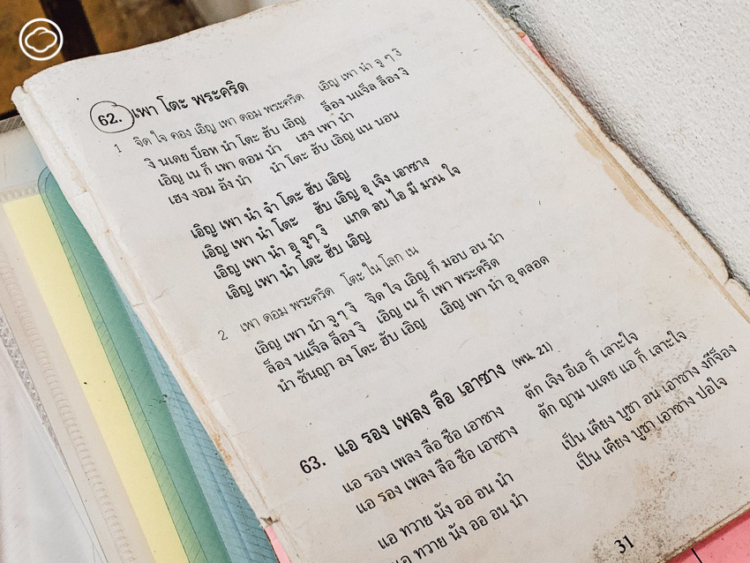 62. เพา โตะ พระคริด
1 จิด ใจ คอง เอิญ เพา ดอม พระคริด เอิญ เพา นำ จู ๆ งิ
งิ นเดย บ็อท นำ โตะ ฮับ เอิญ ล็อง นแจ็ล ล็อง งิ
เอิญ เน ก็ เพา ดอม นำ เฮง เพา นำ
เฮง งอม อัง นำ นำ โตะ ฮับ เอิญ แน นอน
เอิญ เพา นำ จำ โตะ ฮับ เอิญ
เอิญ เพา นำ โตะ ฮับ เอิญ อุ เจิง เอาชาง
เอิญ เพา นำ อุ จูๆ งิ แกด ลบ ไอ มี มวน ใจ
เอิญ เพา นำ โตะ ฮับ เอิญ
2 เพา ดอม พระคริด โตะ ใน โลก เน
เอิญ เพา นำ จู ๆ งิ จิด ใจ เอิญ ก็ มอบ อน นำ
ล็อง นแจ็ล ล็อง งิ เอิญ เน ก็ เพา พระคริด
นำ ชันญา อง โตะ ฮับ เอิญ เอิญ เพา นำ อุ ตลอด
63. แอ รอง เพลง ลือ เอาชาง (พน. 21)
แอ รอง เพลง ลือ ชือ เอาชาง ตัก เจิง อีเอ ก็ เลาะใจ
แอ รอง เพลง ลือ ชือ เอาชาง ตัก ญาม นเดย แอ ก็ เลาะใจ
แอ ทวาย นัง ออ อน นำ เป็น เคียง บูชา อน เอาชาง งกีจ็อง
แอ ทวาย นัง ออ อน นำ เป็น เคียง บูชา เอาชาง ปอใจ
31